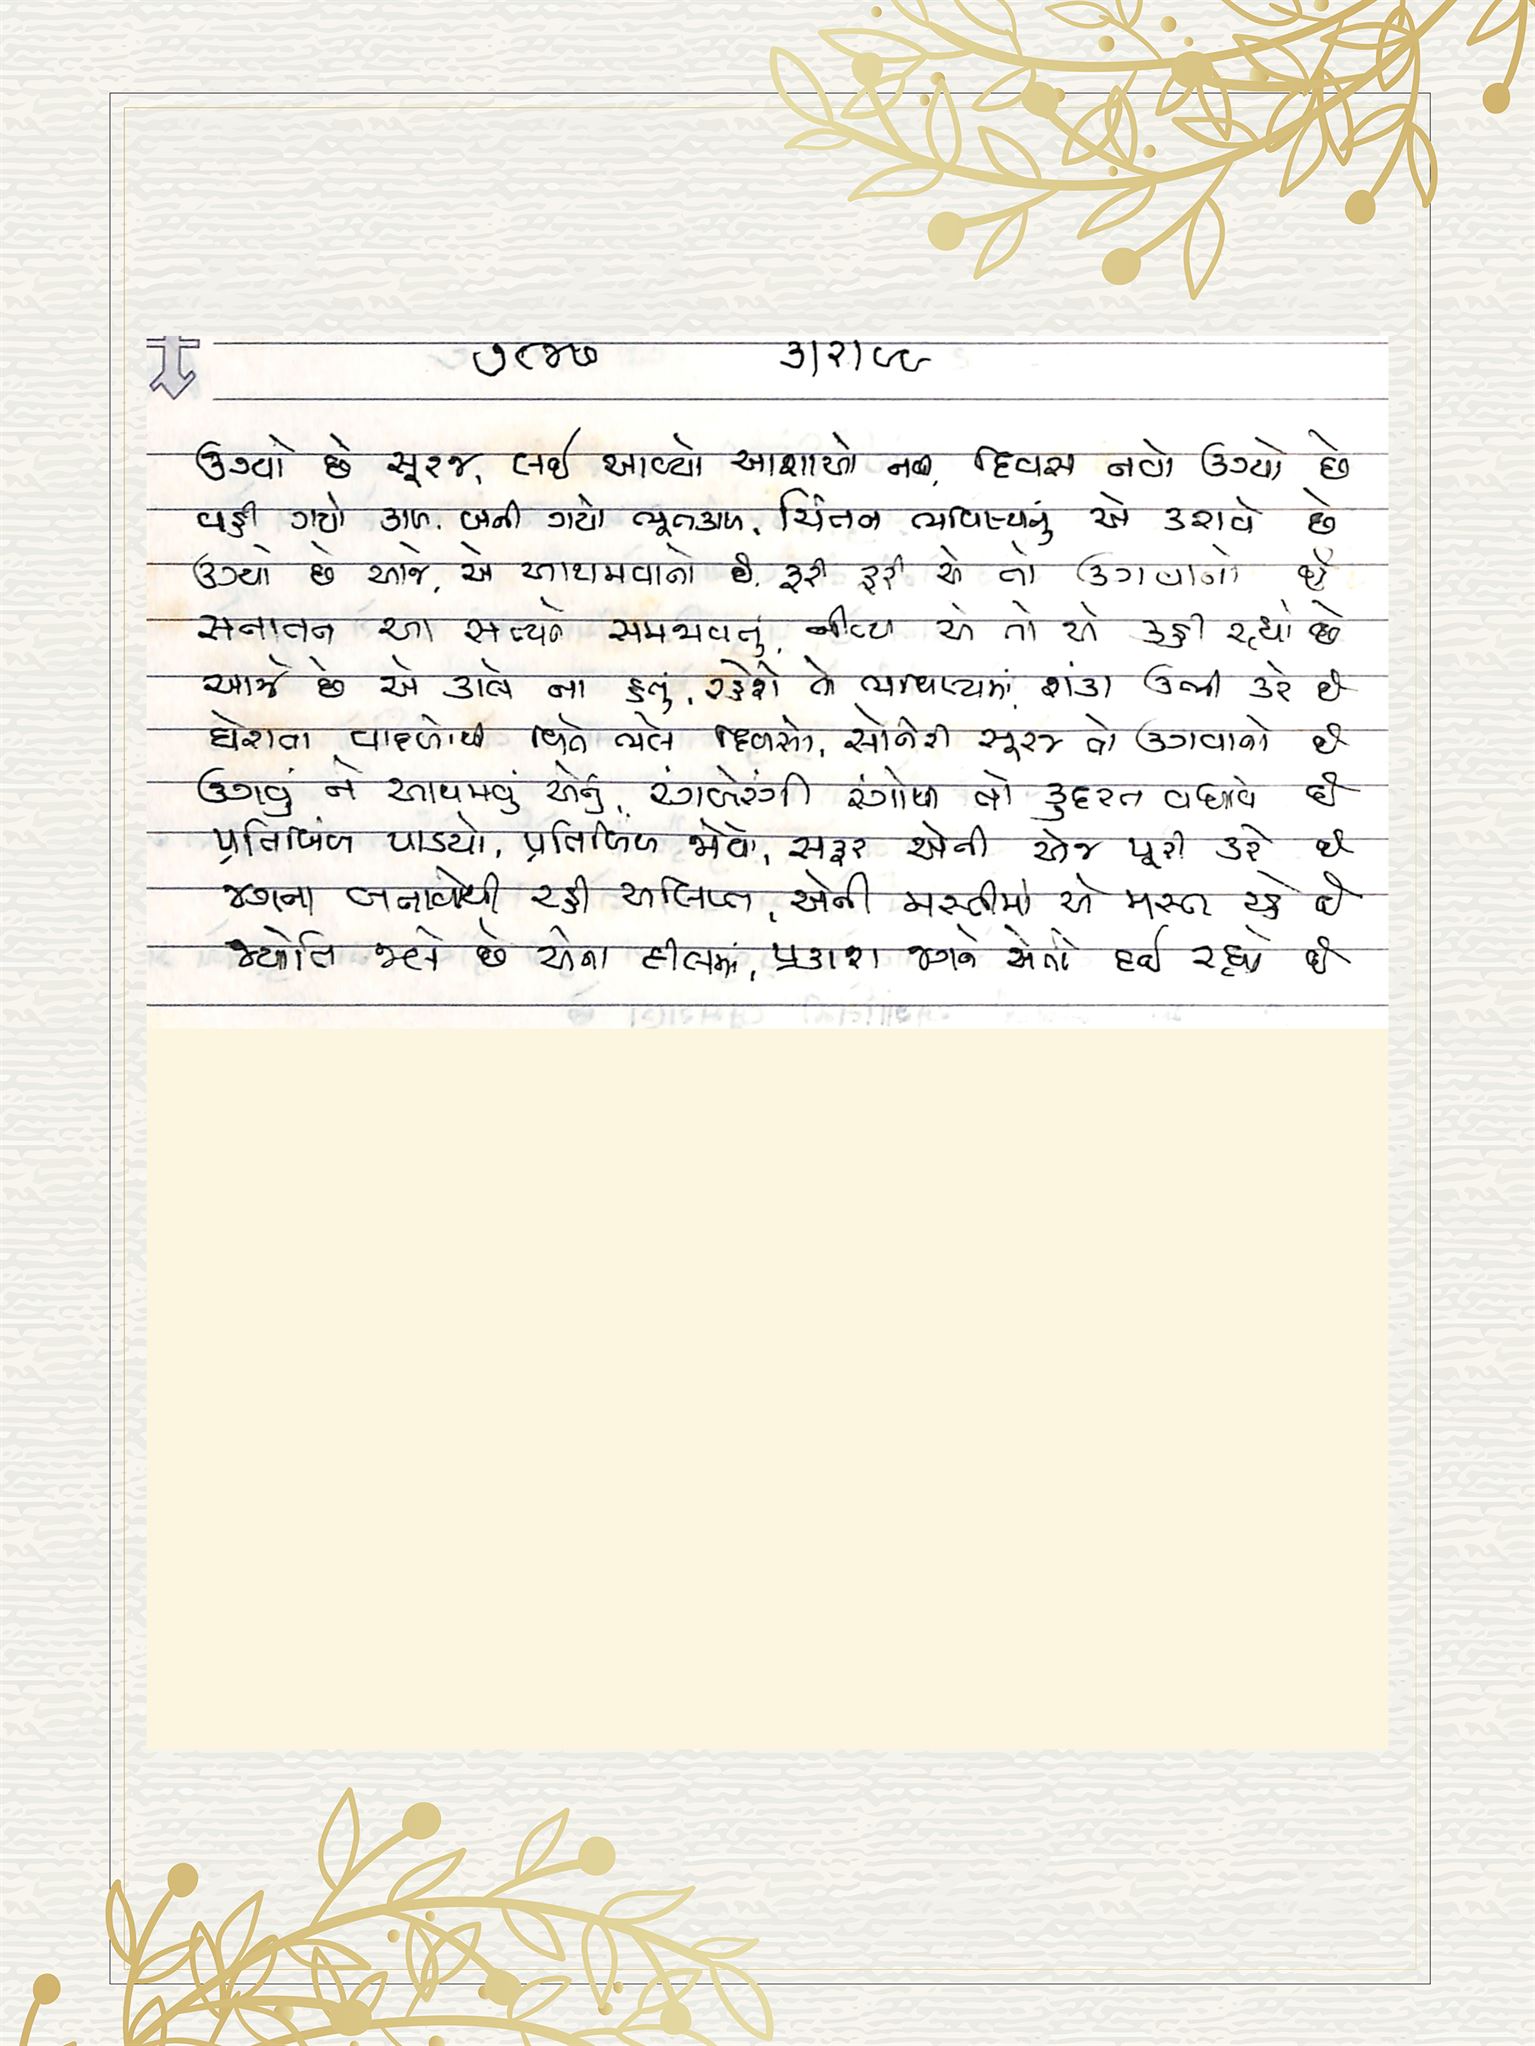 ૭૯૪૭ ૩/૨/૯૯
ઉગ્યો છે સૂરજ, લઈ આવ્યો આશાઓ નવી, દિવસ નવો ઉગ્યો છે
વહી ગયો કાળ, બની ગયો ભૂતકાળ, ચિંતન ભવિષ્યનું એ કરાવે છે
ઉગ્યો છે આજે, એ આથમવાનો છે, ફરી ફરી એ તો ઉગવાનો છે
સનાતન આ સત્યને સમજાવતું, નીત્ય એ તો એ કહી રહ્યો છે
આજે છે એ કાલે ના હતું, રહેશે તે ભવિષ્યમાં, શંકા ઉભી કરે છે
ઘેરાતા વાદળોથી વિતે ભલે દિવસો, સોનેરી સૂરજ તો ઉગવાનો છે
ઉગવું ને આથમવું એનું, રંગબેરંગી રંગોથી તો કુદરત વધાવે છે
પ્રતિબિંબ પાડયો, પ્રતિબિંબ જોવો, સફર એની એજ પૂરી કરે છે
જગના બનાવોથી રહી અલિપ્ત, એની મસ્તીમાં એ મસ્ત રહે છે
જ્યોતિ જલે છે એના દીલમાં, પ્રકાશ જગને એનો દઈ રહ્યો છે